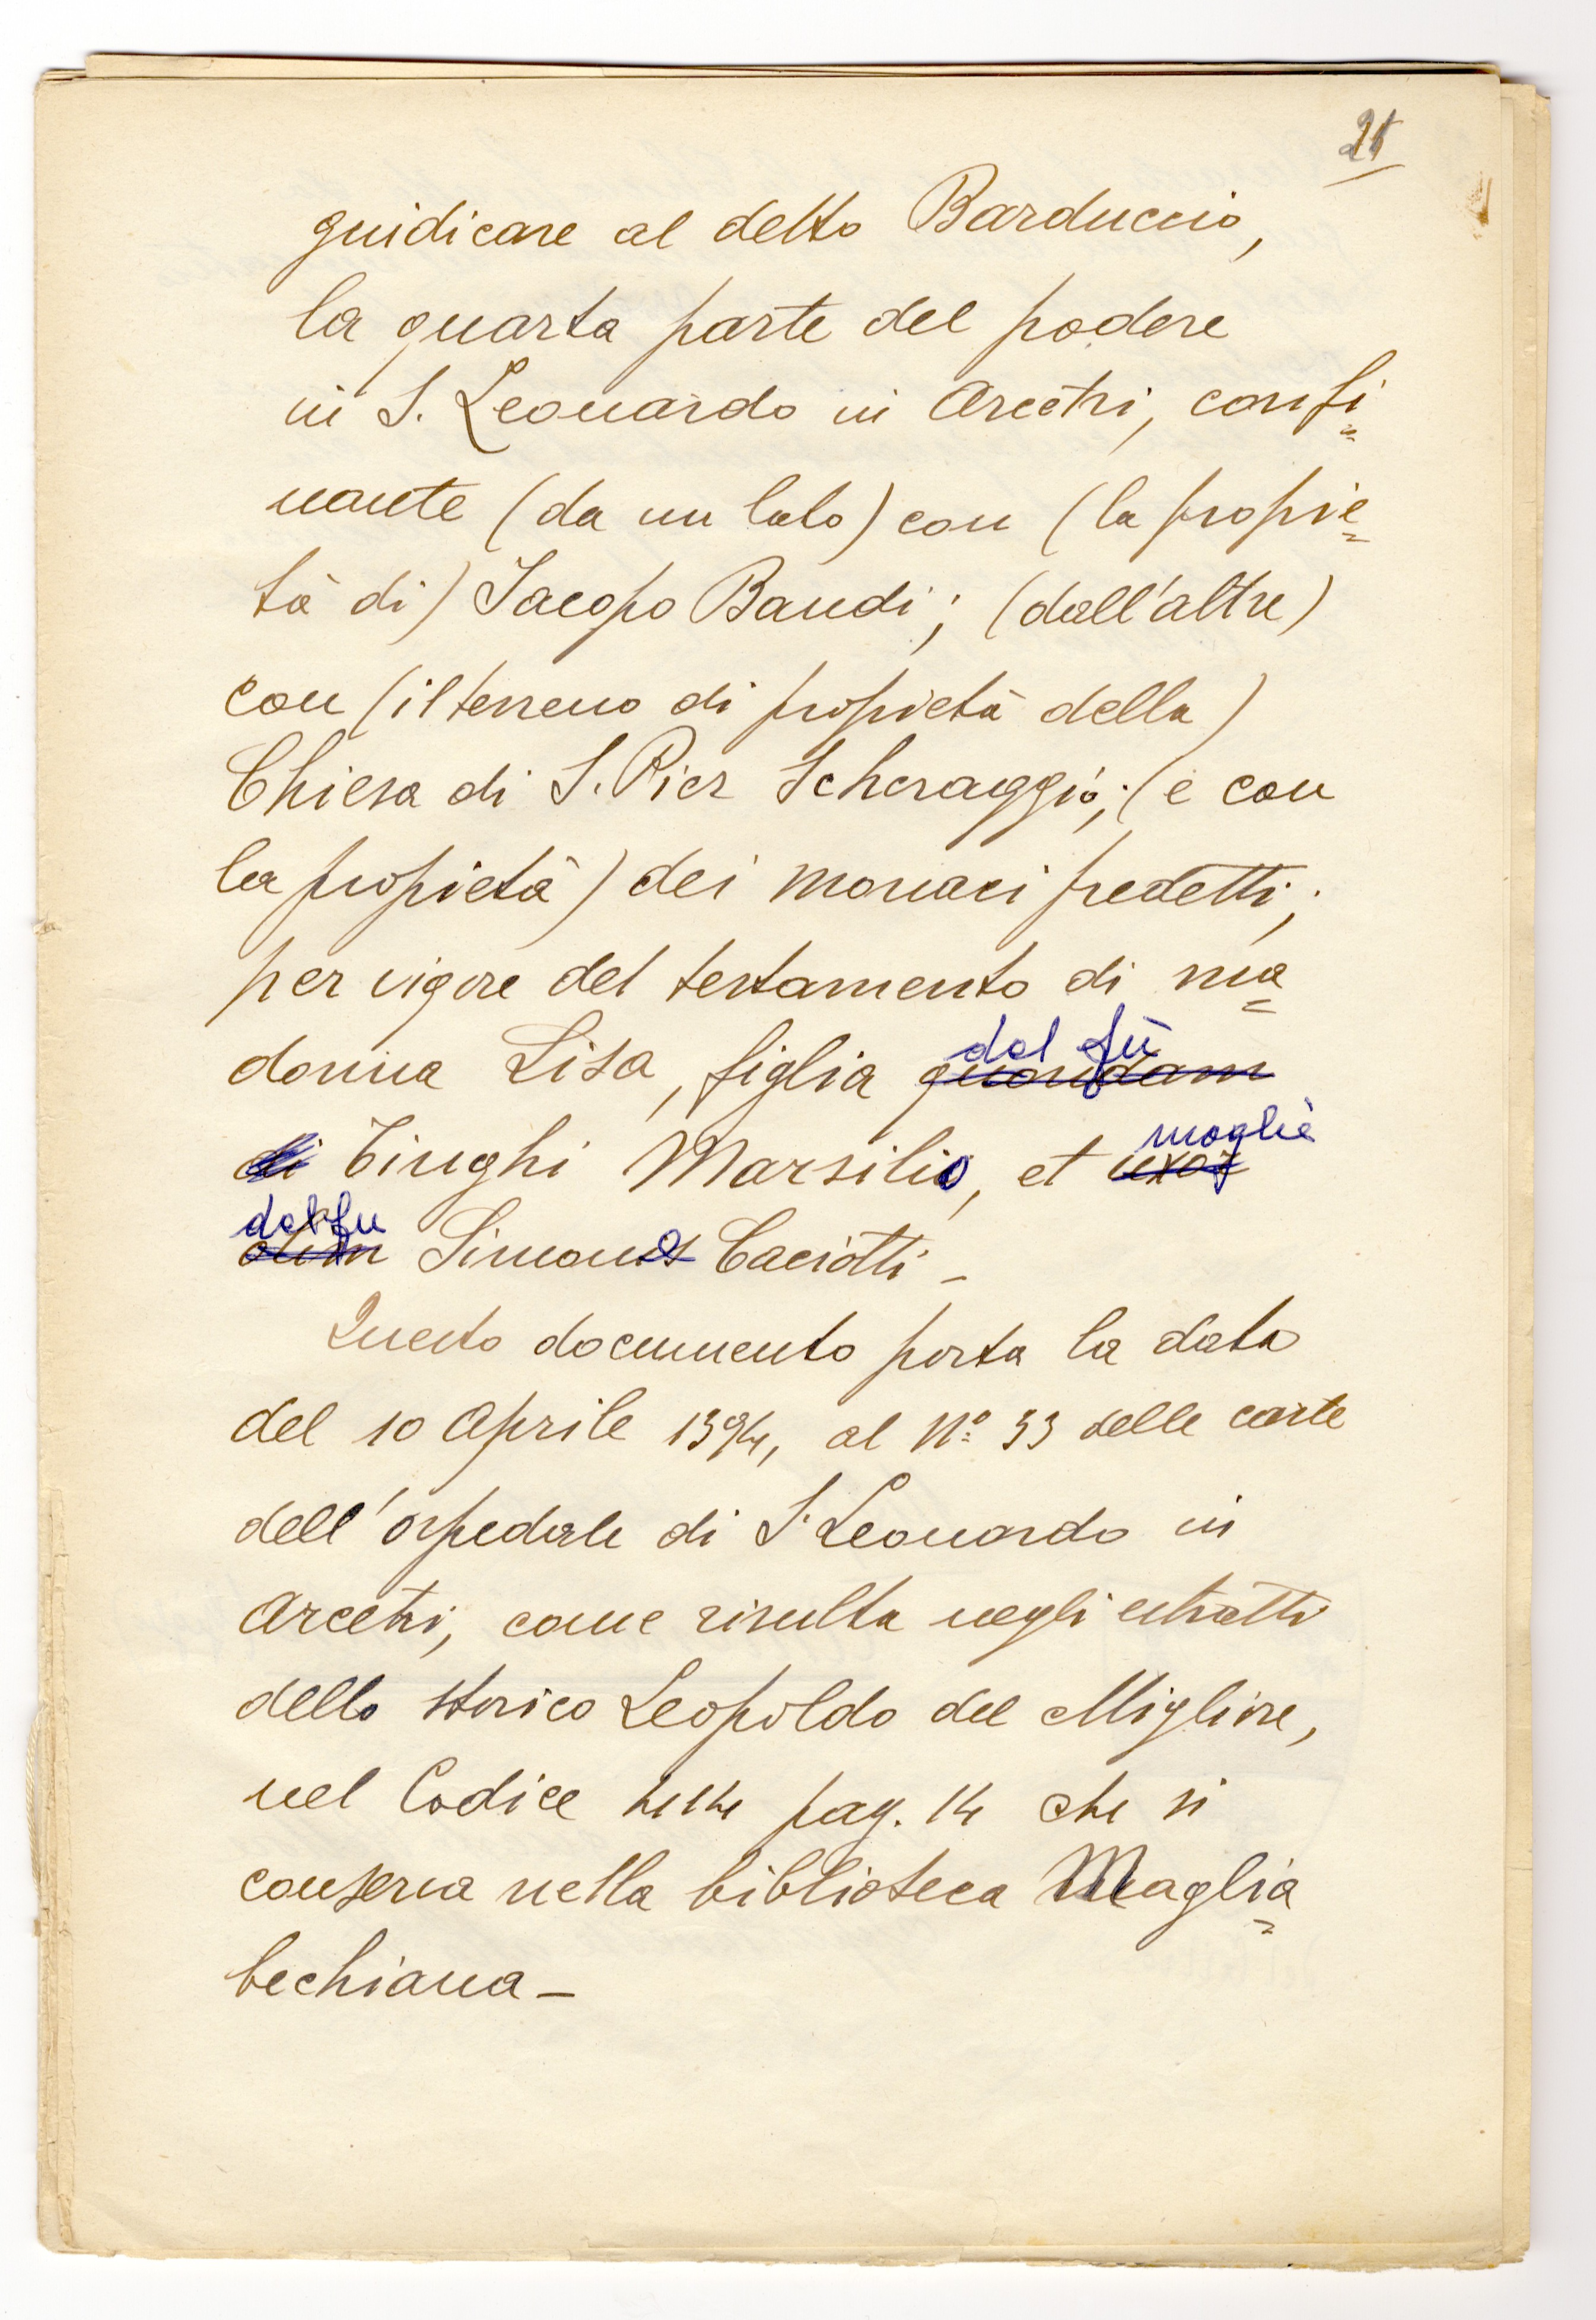 21
guidicare al detto Barduccio,
la quarta parte del podere
in S. Leonardo in Arcetri, confi=
nante (da un lato) con (la proprie=
tà di) Jacopo Bandi; (dall'altre)
con (il terreno di propietà della)
Chiesa di S. Pier Scheraggio; (e con
la propietà) dei monaci predetti;
per vigore del testamento di ma=
dal fù
donna Lisa, figlia quondam
moglie
di Tinghi Marsilio, et uxor
del fu
olim Simone Caciotti -
Questo documento porta la data
del 10 Aprile 1394, al Nº 33 delle carte
dell'ospedale di S. Leonardo in
Arcetri, come risulta negli estratti
dello storico Leopoldo del Migliore,
nel Codice pag. 14 che si
conserva nella biblioteca Maglia=
bechiana -